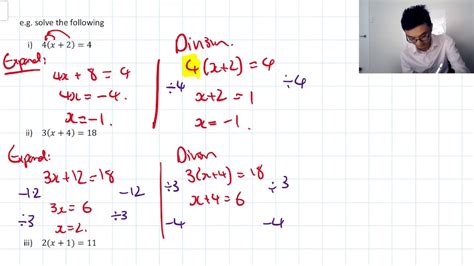 e.g. solve the following
i) 4(x + 2) = 4
Expand:
4x + 8 = 4
4x = -4.
x = -1.
Division.
4(x+2) = 4
÷4 ÷4
x+2 = 1
x = -1.
ii) 3(x + 4) = 18
Expand:
3x + 12 = 18
-12 -12
3x = 6
÷3 ÷3
x = 2.
Division
3(x+4) = 18
÷3 ÷3
x+4 = 6
-4 -4
iii) 2(x + 1) = 11